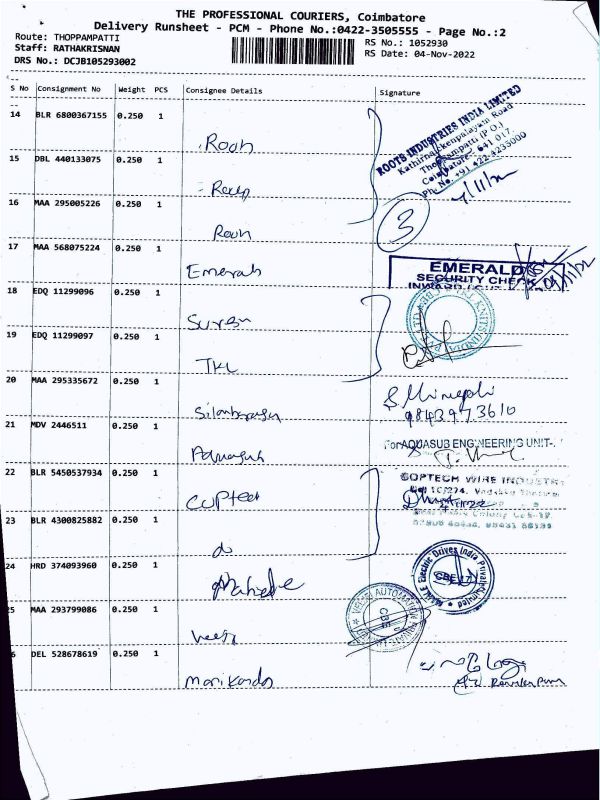 THE PROFESSIONAL COURIERS, Coimbatore
Delivery Runsheet - PCM - Phone No.:0422-3505555 - Page No.:2
Route: THOPPAMPATTI
Staff: RATHAKRISNAN
DRS No.: DCJB105293002
RS No.: 1052930
RS Date: 04-Nov-2022
S No Consignment No Weight PCS Consignee Details Signature
14 BLR 6800367155 0.250 1
ROOTS INDUSTRIES INDIA LIMITED
Kathirnaickenpalayam Road
Thoppampatti (P.O.)
Coimbatore - 641 017.
Ph No. +91 422 4233000
15 DBL 440133075 0.250 1
16 MAA 295005226 0.250 1
3
17 MAA 568075224 0.250 1
Emerald
EMERALD
SECURITY CHECK
INWARD
18 EDQ 11299096 0.250 1
Suren
19 EDQ 11299097 0.250 1
TKL
20 MAA 295335672 0.250 1
9843973610
21 MDV 2446511 0.250 1
For AQUASUB ENGINEERING UNIT-
22 BLR 5450537934 0.250 1
Coptech
COPTECH WIRE INDUSTRY
23 BLR 4300825882 0.250 1
do
24 HRD 374093960 0.250 1
Mahle
MAHLE Electric Drives India Private Limited
CBE-17
25 MAA 293799086 0.250 1
CBE
6 DEL 528678619 0.250 1
Manikanda